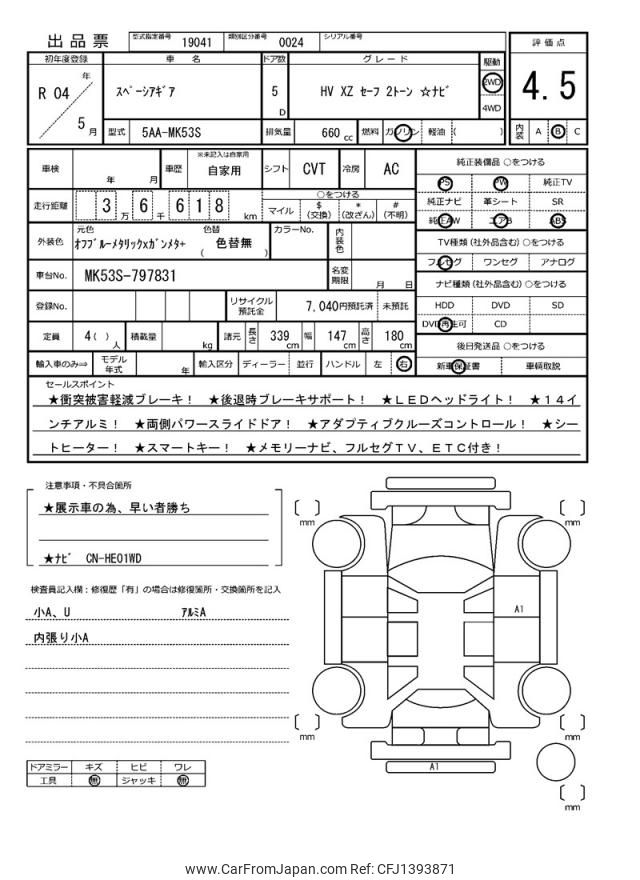 出品票 型式指定番号 19041 類別区分番号 0024 シリアル番号
評価点
4.5
内装 A B C
初年度登録 車名 ドア数 グレード 駆動
R 04 年 5 月
ｽﾍﾟｰｼｱｷﾞｱ 5 D HV XZ ｾｰﾌ 2ﾄｰﾝ ☆ﾅﾋﾞ 2WD
4WD
型式 5AA-MK53S 排気量 660 cc 燃料 ガソリン 軽油 ( )
車検 年 月 車歴 ※未記入は自家用 自家用 シフト CVT 冷房 AC
走行距離 3 万 6 千 6 1 8 km
○をつける
マイル $ (交換) * (改ざん) # (不明)
外装色 元色 ｵﾌﾌﾞﾙｰﾒﾀﾘｯｸｘｶﾞﾝﾒﾀ+ 色替 ( 色替無 ) カラーNo. 内装色
車台No. MK53S-797831 名変期限 月 日
登録No. リサイクル預託金 7,040円預託済 未預託
定員 4( )人 積載量 kg 諸元 長さ 339 cm 幅 147 cm 高さ 180 cm
輸入車のみ⇒ モデル年式 年 輸入区分 ディーラー 並行 ハンドル 左 右
純正装備品 ○をつける
PS PW 純正TV
純正ナビ 革シート SR
純正AW エアB ABS
TV種類 (社外品含む) ○をつける
フルセグ ワンセグ アナログ
ナビ種類 (社外品含む) ○をつける
HDD DVD SD
DVD再生可 CD
後日発送品 ○をつける
新車保証書 車輌取説
セールスポイント
★衝突被害軽減ブレーキ！ ★後退時ブレーキサポート！ ★ＬＥＤヘッドライト！ ★１４イ
ンチアルミ！ ★両側パワースライドドア！ ★アダプティブクルーズコントロール！ ★シー
トヒーター！ ★スマートキー！ ★メモリーナビ、フルセグＴＶ、ＥＴＣ付き！
注意事項・不具合箇所
★展示車の為、早い者勝ち
★ﾅﾋﾞ CN-HE01WD
検査員記入欄：修復歴「有」の場合は修復箇所・交換箇所を記入
小A、U ｱﾙﾐA
内張り小A
ドアミラー キズ ヒビ ワレ
工具 無 ジャッキ 無
mm
mm
A1
mm
mm
A1
mm
www.CarFromJapan.com Ref: CFJ1393871